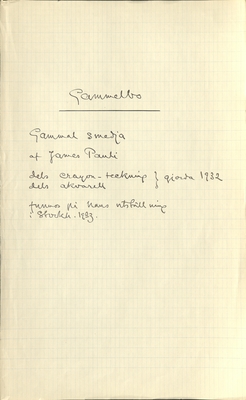 Gammelbo
Gammal smedja
af James Pauli
dels crayon-teckning } gjorda 1932
dels akvarell
funnos på hans utställning
i Stockh. 1933.